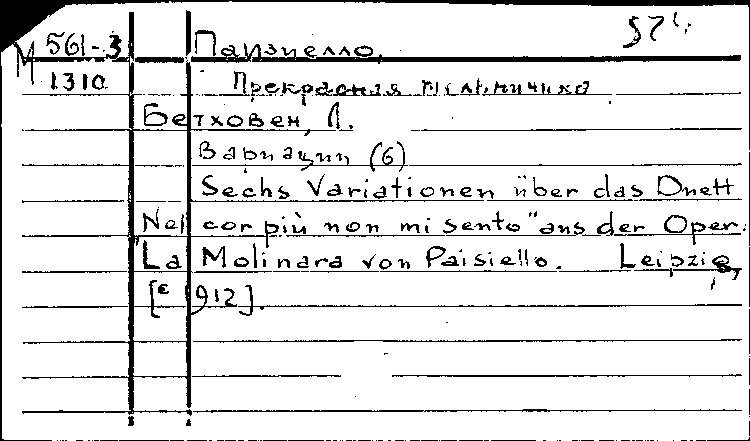 М 561-3 Паизиелло, 524
1310 Прекрасная мельничиха
Бетховен, Л.
Вариации (6)
Sechs Variationen über das Duett
Nel cor più non mi sento" aus der Oper.
"La Molinara von Paisiello. Leipzig,
[c 1912].